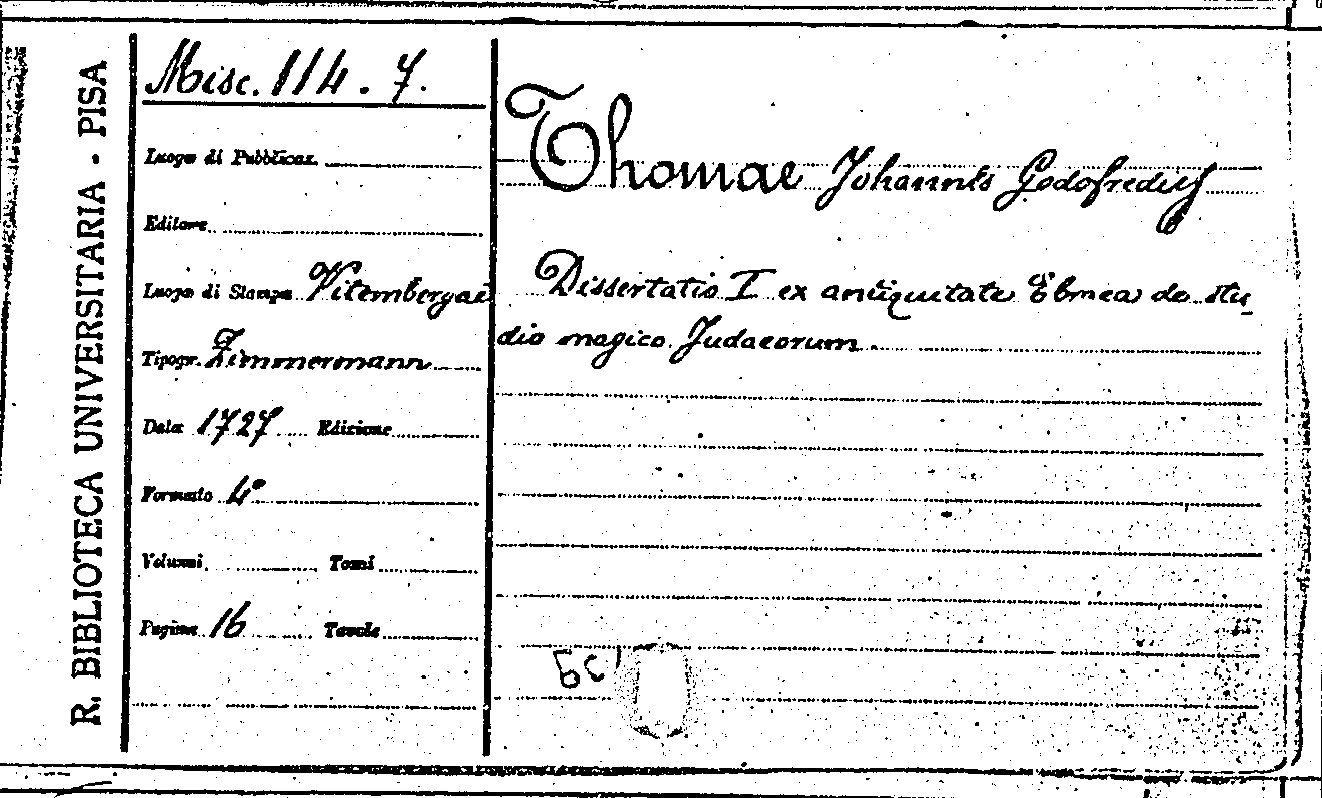 R. BIBLIOTECA UNIVERSITARIA - PISA
Misc. 114. 7.
Luogo di Pubblicaz.
Editore
Luogo di Stampa Vitembergae
Tipogr. Zimmermann
Data 1727 Edizione
Formato 4°
Volumi Tomi
Pagine 16 Tavole
Thomae Johannis Godofredus
Dissertatio I ex antiquitate Ebraea de stu-
dio magico Judaeorum.